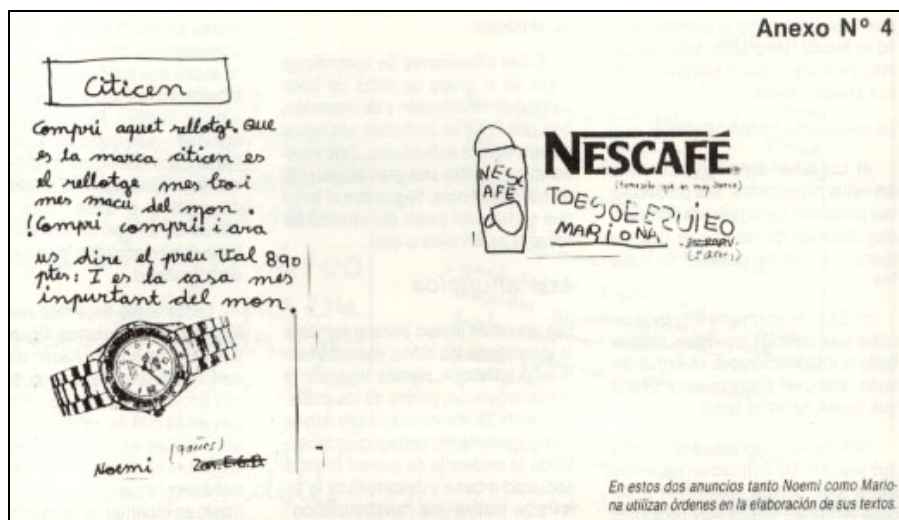 Anexo Nº 4
Citicen
Compri aquet rellotge. Que
es la marca citicen es
el rellotge mes bo i
mes macu del mon.
¡Compri comprii i ara
us dire el preu Val 890
ptes: I es la casa mes
inpurtant del mon.
Noemi
NESCAFÉ
NES
AFÉ
TOESOEEQUIEO
MARIONA
(5 anys)
En estos dos anuncios tanto Noemi como Mario-
na utilizan órdenes en la elaboración de sus textos.